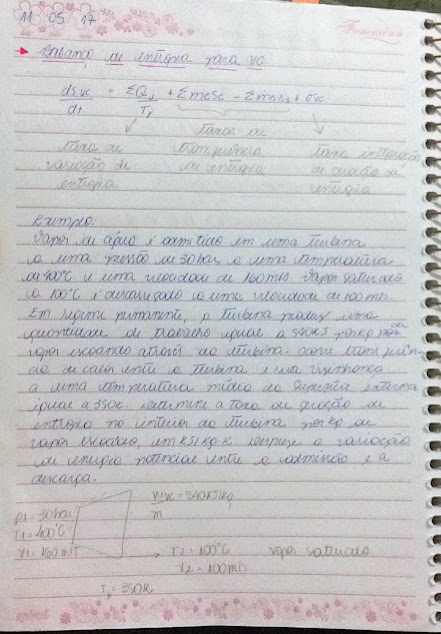 11 05 17
Feminina
Balanço de entropia para VC
dSvc = ΣQj + Σmese - Σmsss + σvc
dt Tj
taxa de
variação de
entropia
taxas de
transferência
de entropia
taxa
de geração de
entropia
Exemplo:
Vapor de água é admitido em uma turbina
a uma pressão de 30 bar, a uma temperatura
de 400°C e uma velocidade de 160 m/s. Vapor saturado
a 100°C é descarregado a uma velocidade de 100 m/s.
Em regime permanente, a turbina produz uma
quantidade de trabalho igual a 540 KJ por kg de
vapor escoando através da turbina. Ocorre transferên-
cia de calor entre a turbina e sua vizinhança
a uma temperatura média da superfície externa
igual a 350K. Determine a taxa de geração de
entropia no interior da turbina por kg de
vapor escoando, em KJ/kg.K. Despreze a variação
de energia potencial entre a admissão e a
descarga.
Wvc = 540KJ/kg
m
P1 = 30 bar
T1 = 400°C
V1 = 160 m/s
T2 = 100°C vapor saturado
V2 = 100 m/s
Tj = 350K
spiral